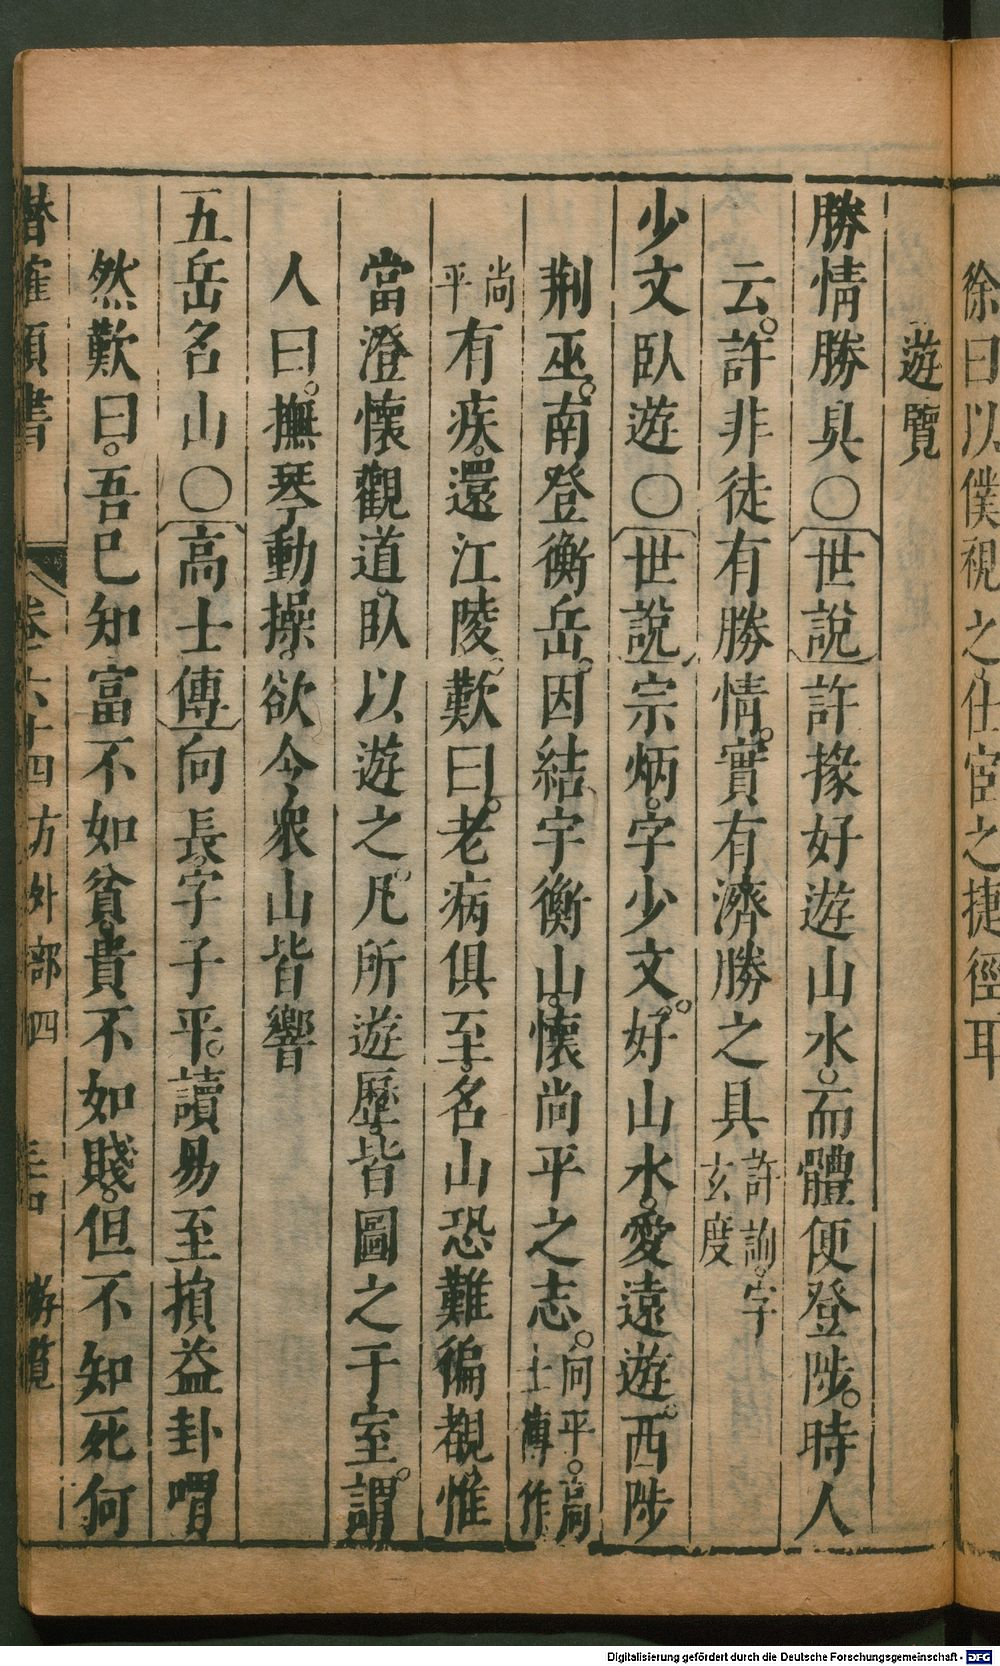 徐曰以僕視之仕宦之捷徑耳
遊覽
勝情勝具○世說許掾好遊山水。而體便登陟。時人
云。許非徒有勝情。實有濟勝之具許詢。字玄度
少文臥遊○世說宗炳。字少文。好山水。愛遠遊。西陟
荆巫。南登衡岳。因結宇衡山。懷尚平之志。向平。高士傳作
尚平有疾。還江陵。歎曰。老病俱至。名山恐難徧覩。惟
當澄懷觀道。臥以遊之。凡所遊歷。皆圖之于室。謂
人曰。撫琴動操。欲令衆山皆響
五岳名山○高士傳向長。字子平。讀易至損益卦喟
然歎曰。吾已知富不如貧。貴不如賤。但不知死何
潛確類書 卷六十四方外部四 三十四 游覽
Digitalisierung gefördert durch die Deutsche Forschungsgemeinschaft - DFG